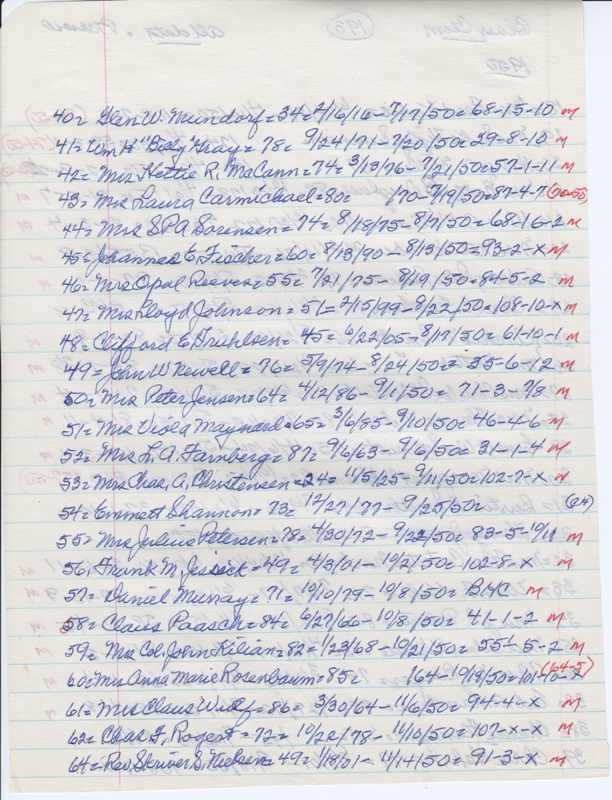 40= Glen W. Mundorf=34=2/16/16-7/17/50=68-15-10 M
41= Wm H "Billy" Gray=78= 9/24/71-7/20/50=29-8-10 M
42= Mrs Hettie R. McCann=74= 3/13/76-7/21/50=57-1-11 M
43= Mrs Laura Carmichael=80= /70-7/19/50=87-4-7 (70-50)
44= Mrs SPA Sorensen=74= 8/18/75-8/7/50=68-16-2 M
45= Johannes C Fischer=60= 8/13/90-8/13/50=93-2-X M
46= Mrs Opal Reeves=55= 7/21/75-8/19/50=84-5-2 M
47= Mrs Lloyd Johnson=51=2/15/99-8/22/50=108-10-X M
48= Clifford E =45= 6/22/05-8/17/50= 61-10-1 M
49= John W Newell=76= 5/9/74-8/24/50= 35-6-12 M
50= Mrs Peter Jensen=64= 4/12/86-9/1/50= 71-3-7/8 M
51= Mrs Viola Maynard=65= 3/6/85-9/10/50= 46-4-6 M
52= Mrs L. A. Farnberg=87= 9/6/63-9/6/50= 31-1-4 M
53= Mrs Chas. A. Christensen=24= 11/5/25-9/11/50=102-7-X M
54= Emmett Shannon=73= 12/27/77-9/25/50=
55= Mrs Julius Petersen=78= 4/30/72-9/22/50= 83-5-10/11 M
56. Frank M. Jessick=49= 4/3/01-10/2/50= 102-8-X M
57= Daniel Murray=71= 10/10/79-10/8/50= BHC M
58= Claus Paasch=84= 6/27/66-10/8/50= 41-1-2 M
59= Mrs Col. John Kilian=82=1/23/68-10/21/50= 55-5-2 M
60= Mrs Anna Marie Rosenbaum=85= /64-10/19/50=101-10-X (64-5)
61= Mrs Claus Wulf=86= 3/30/64-11/6/50= 94-4-X M
62= Chas F. Rogert=72= 10/22/78-11/10/50= 107-X-X M
64= Rev. Skriver S. Nielsen=49= 1/18/01-11/14/50= 91-3-X M